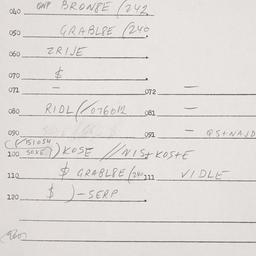 040 BRONSE (242
050 GRABLBE (240
060 ZRIJE
070 $
071 — 072 —
080 RIDL (/076012 081 —
090 091 — OSTNAJD
(/151054
100 SOXE) KOSE //NIS+KOSTE
110 $ GRABLBE (240 111 VIDLE
120 $ ) - SERP